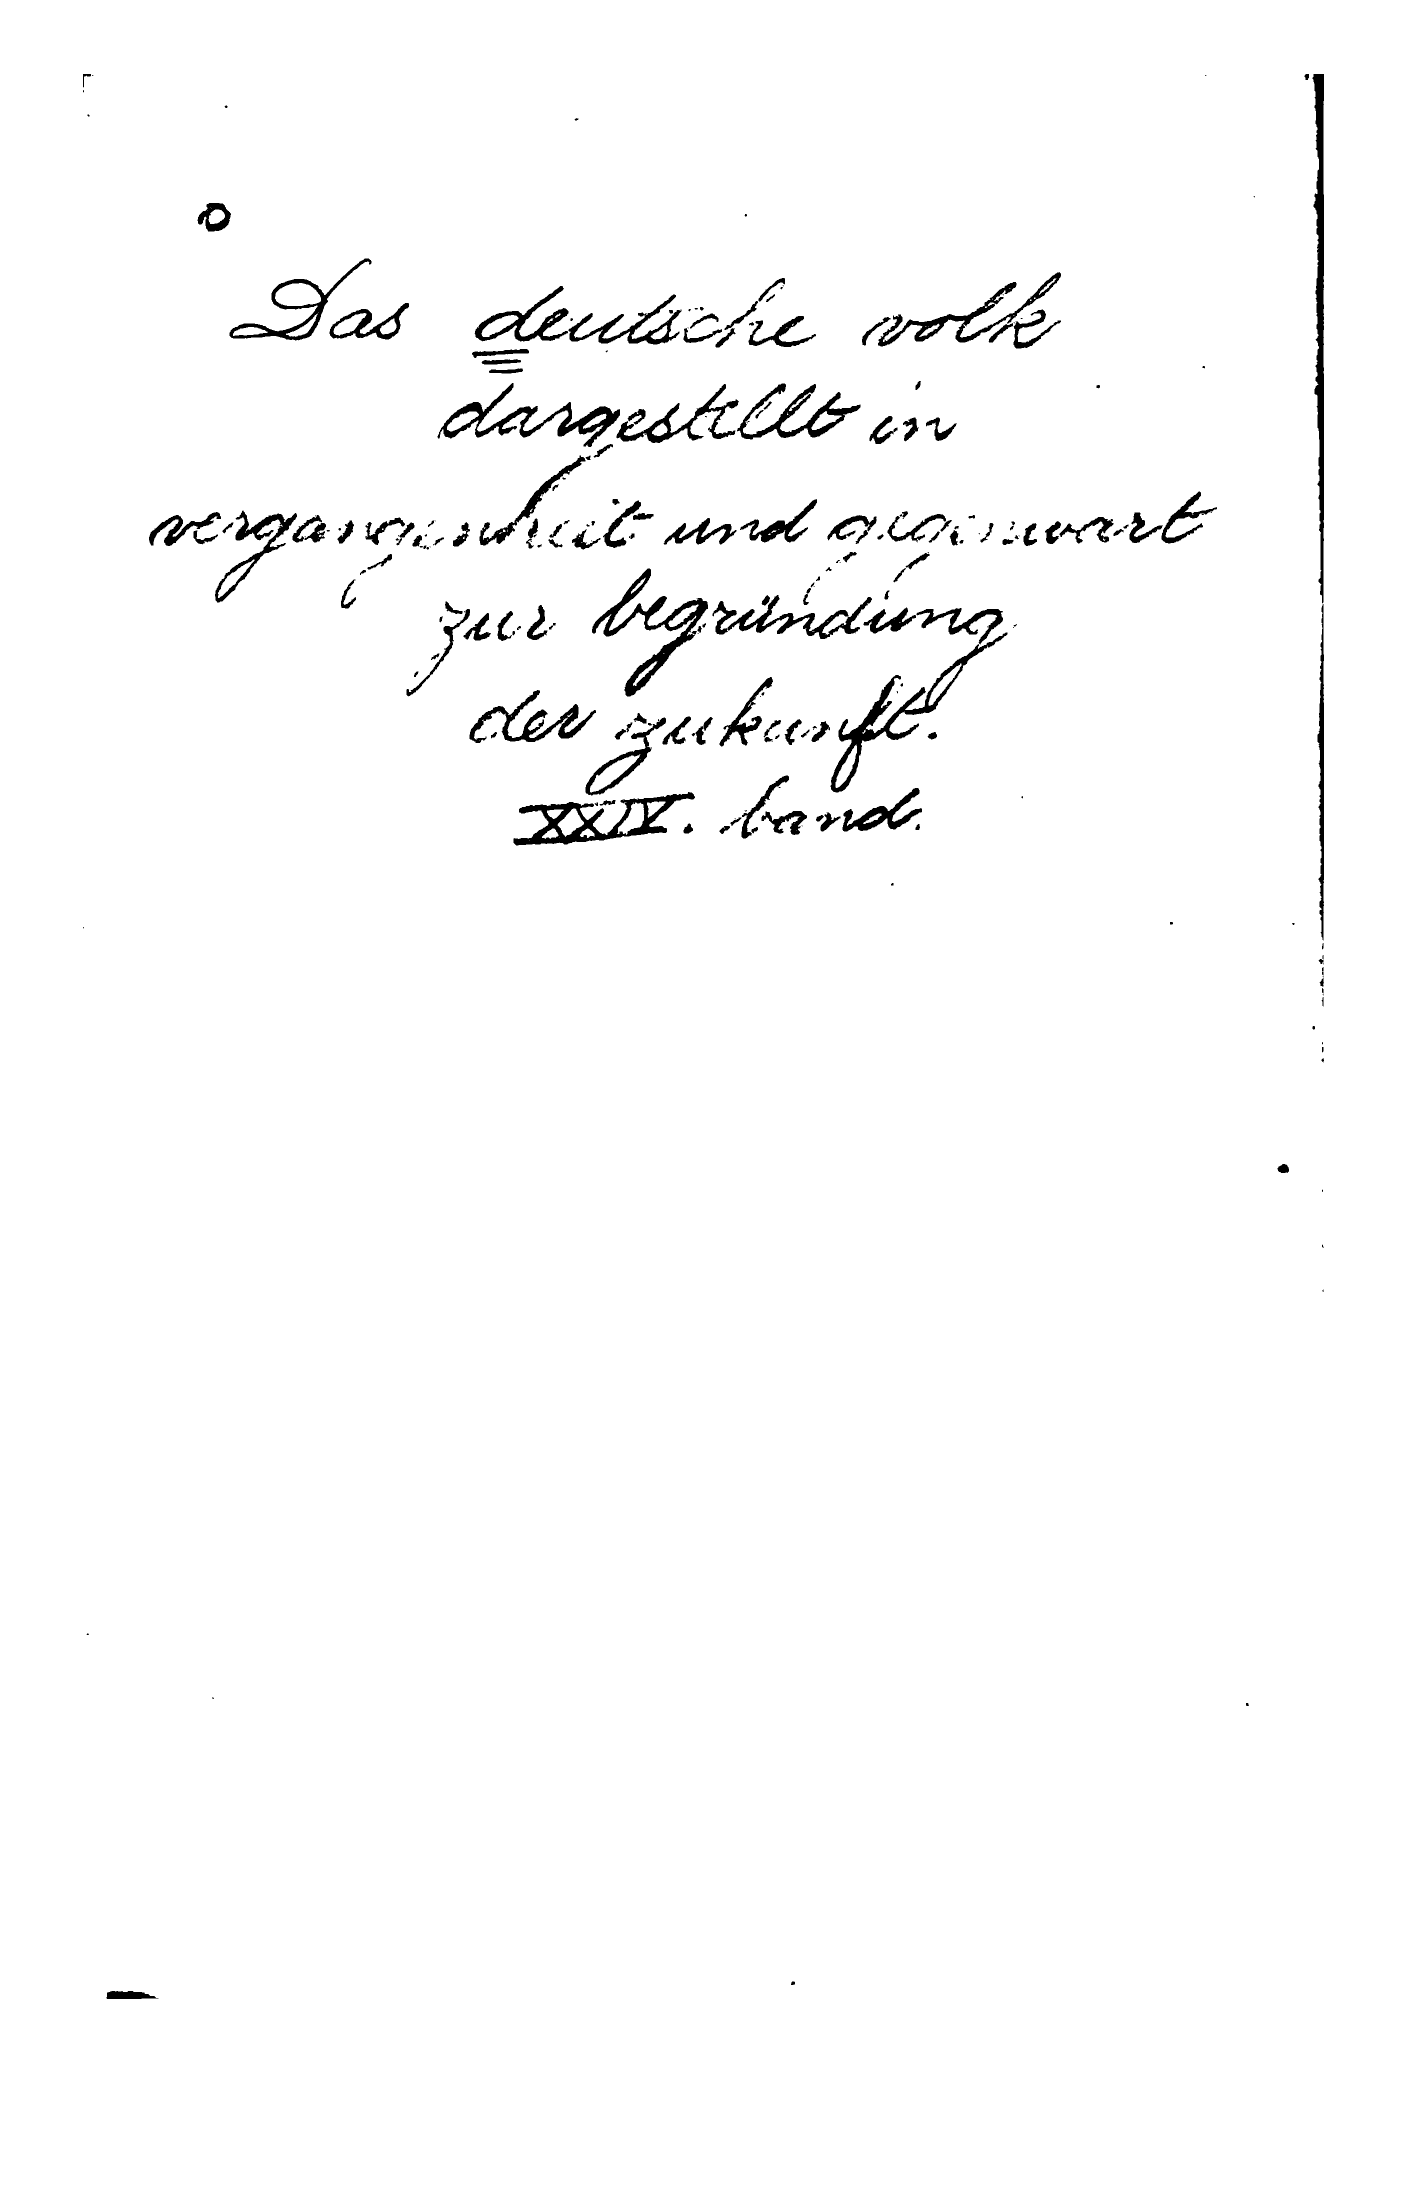 Das deutsche volk
dargestellt in
vergangenheit und gegenwart
zur begründung
der zukunft.
XXIV. band.